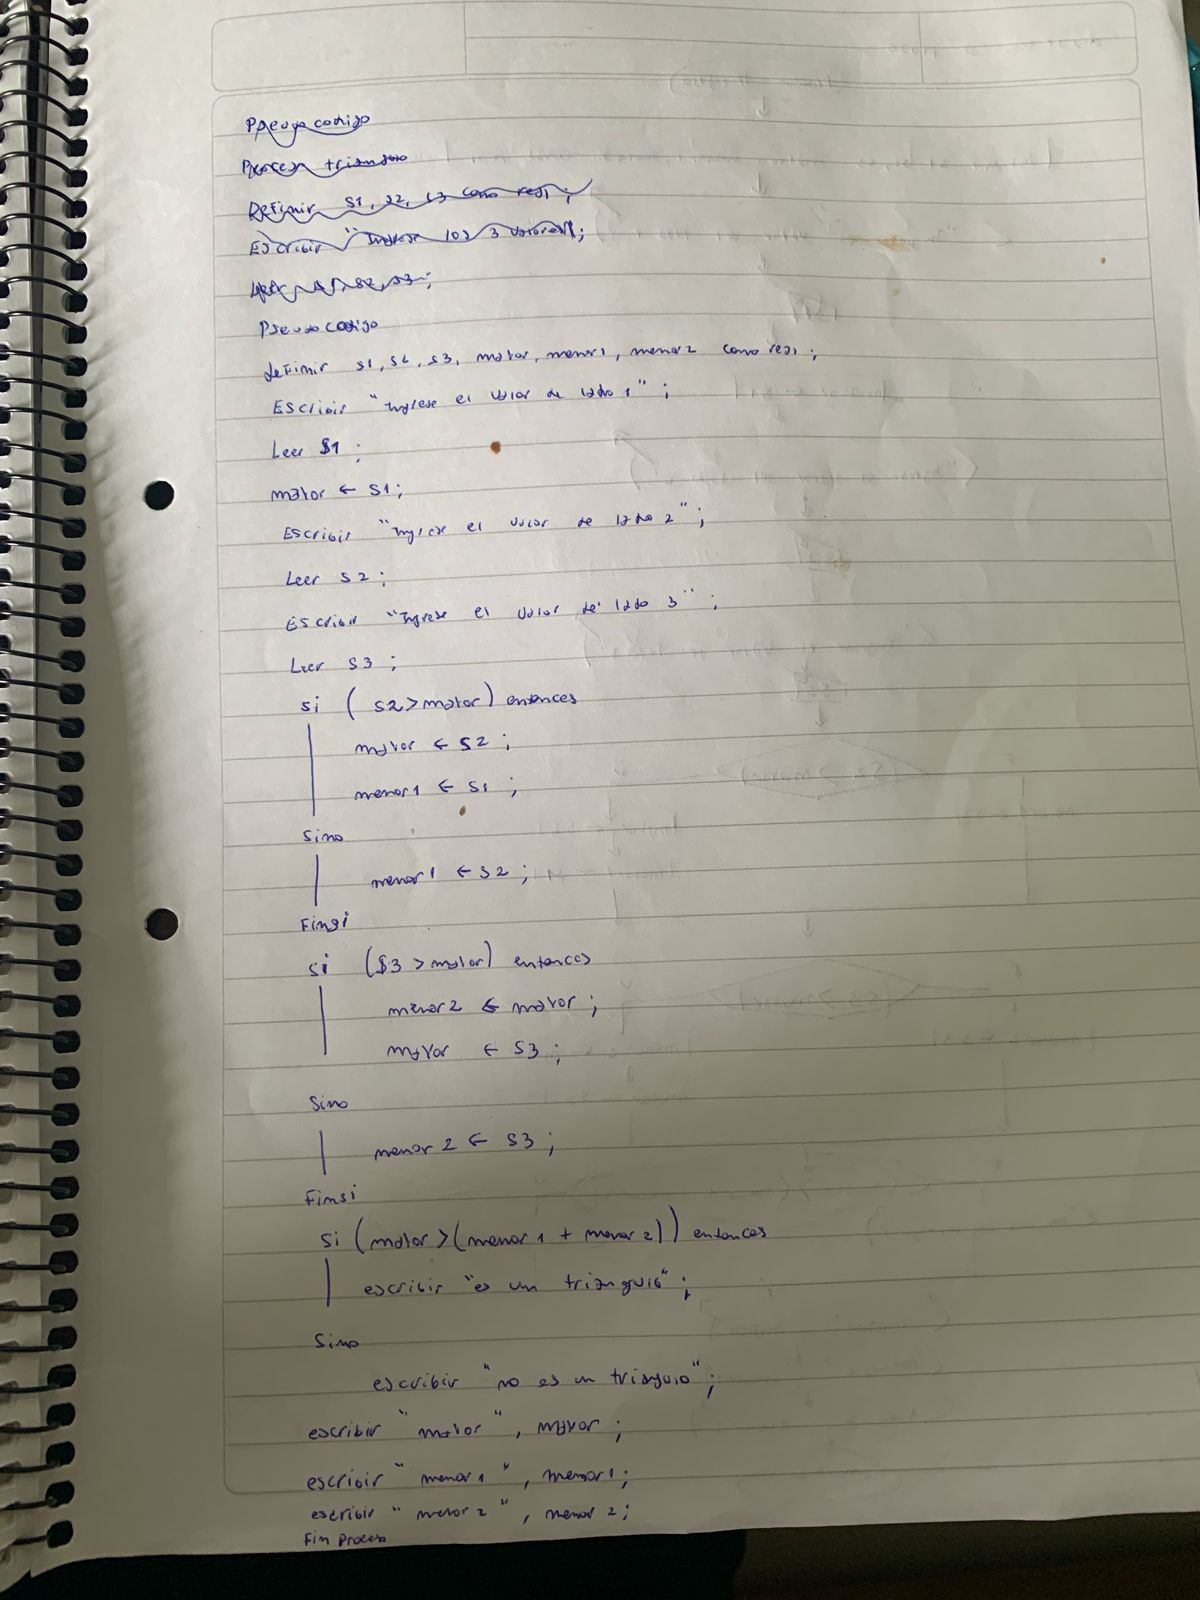 Pseudo codigo
Proceso triangulo
Definir S1, S2, S3 como real;
Escribir "Ingrese los 3 valores";
Leer S1, S2, S3;
Pseudo codigo
definir S1, S2, S3, mayor, menor1, menor2 como real;
Escribir "Ingrese el valor de lado 1";
Leer S1;
mayor ← S1;
Escribir "Ingrese el valor de lado 2";
Leer S2;
Escribir "Ingrese el valor de lado 3";
Leer S3;
si (S2 > mayor) entonces
mayor ← S2;
menor1 ← S1;
Sino
menor1 ← S2;
Finsi
si (S3 > mayor) entonces
menor2 ← mayor;
mayor ← S3;
Sino
menor2 ← S3;
Finsi
si (mayor > (menor1 + menor2)) entonces
escribir "es un triangulo";
Sino
escribir "no es un triangulo";
escribir "mayor", mayor;
escribir "menor1", menor1;
escribir "menor2", menor2;
Fin proceso